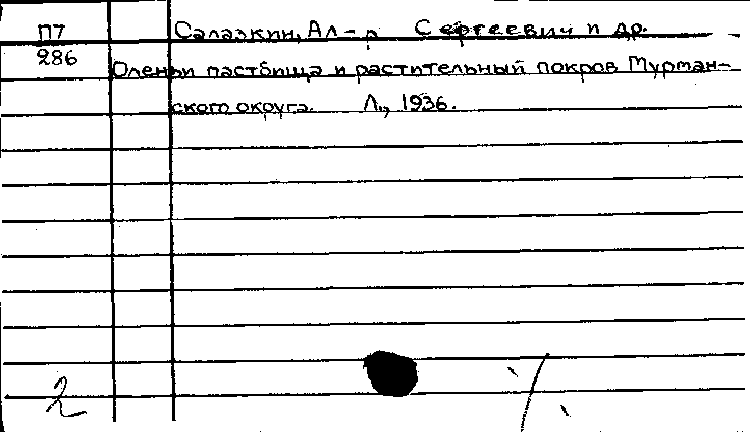 П7 Салазкин, Ал-р Сергеевич и др.
286 Оленьи пастбища и растительный покров Мурман-
ского округа. Л., 1936.
2